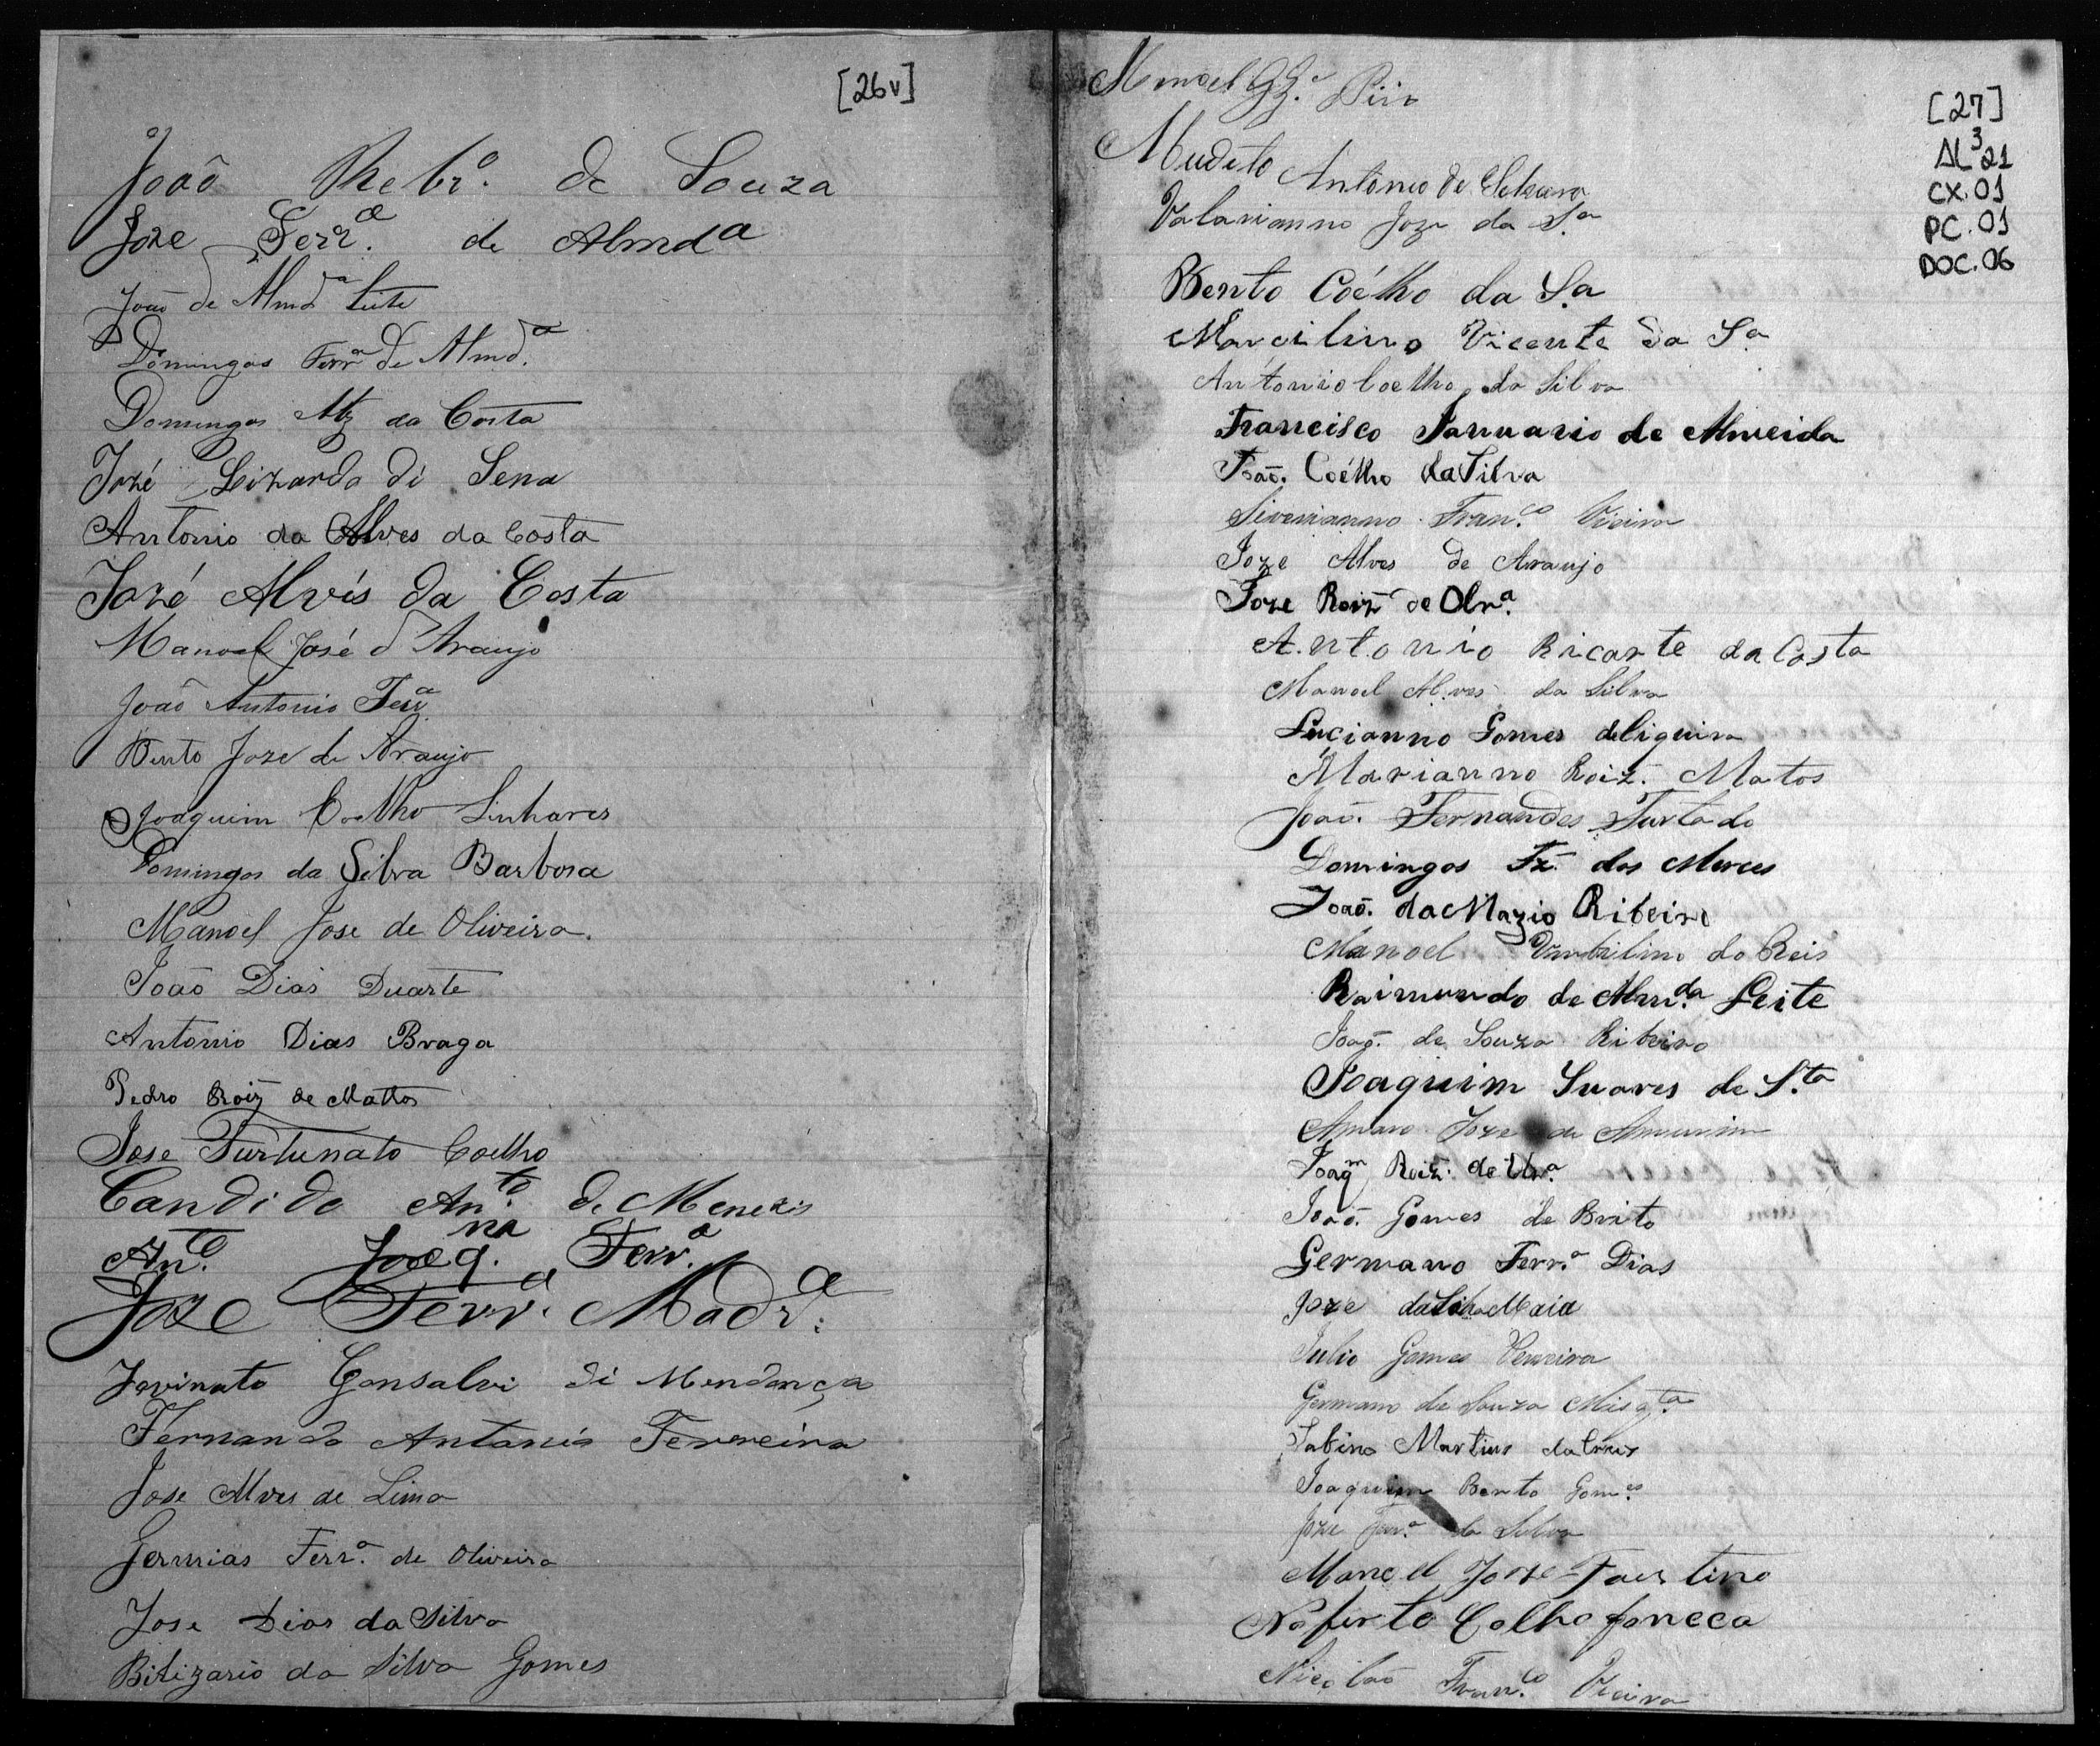 [26v]
João Rebrº. de Souza
Joze Ferrª. de Almdª
João de Almdª Leite
Domingos Ferrª de Almdª.
Domingos Mtz da Costa
Jozé Lizardo di Sena
Antonio da Alves da Costa
Jozé Alvis da Costa
Manoel José d'Araujo
João Antonio Ferrª
Bento Joze de Araujo
Joaquim Coelho Linhares
Domingos da Silva Barbosa
Manoel Jose de Oliveira.
João Dias Duarte
Antonio Dias Braga
Pedro Roiz de Mattos
Jose Furtunato Coelho
Candido Anto. de Menezis
Anto. Joaq. Ferrª.
Joze Ferrª. Madrª.
Gonsalvi di Mendonça
Fernando Antonio Ferreira
Jose Alves de Lima
Jermias Ferrª. de Oliveira
Jose Dias da Silva
Bilizario da Silva Gomes
[27]
AL³21
CX.01
PC.01
DOC.06
Manoel
Antonio de
Valarianno Joze da Sª
Bento Coélho da Sª
Marcilino Vicente da Sª
Antonio Coelho da Silva
Francisco Januario de Almeida
João. Coélho da Silva
Siverianno Franco. Vieira
Joze Alves de Araujo
Joze Roiz de Olrª.
Antonio Ricarte da Costa
Manoel Alves da Silva
Lucianno Gomes deliquira
Marianno Roiz. Matos
João. Fernandes Furtado
Domingos Fz. dos Merces
João. da Mazio Ribeiro
Manoel do Reis
Raimundo de Almda. Leite
Joaq. de Souza Ribeiro
Joaquim Suares de Sta
Amaro Joze de Amurim
Joaqm Roiz. de Olrª.
João. Gomes de Brito
Germano Ferrª Dias
Joze da Silva Maia
Julio Gomes
Germano de Souza
Sabino Martins da Cruz
Joaquim Bento Gomes
Joze Ferrª. da Silva
Manoel Joze Faustino
Noferto Colho foneca
Nicolao Franco. Vieira